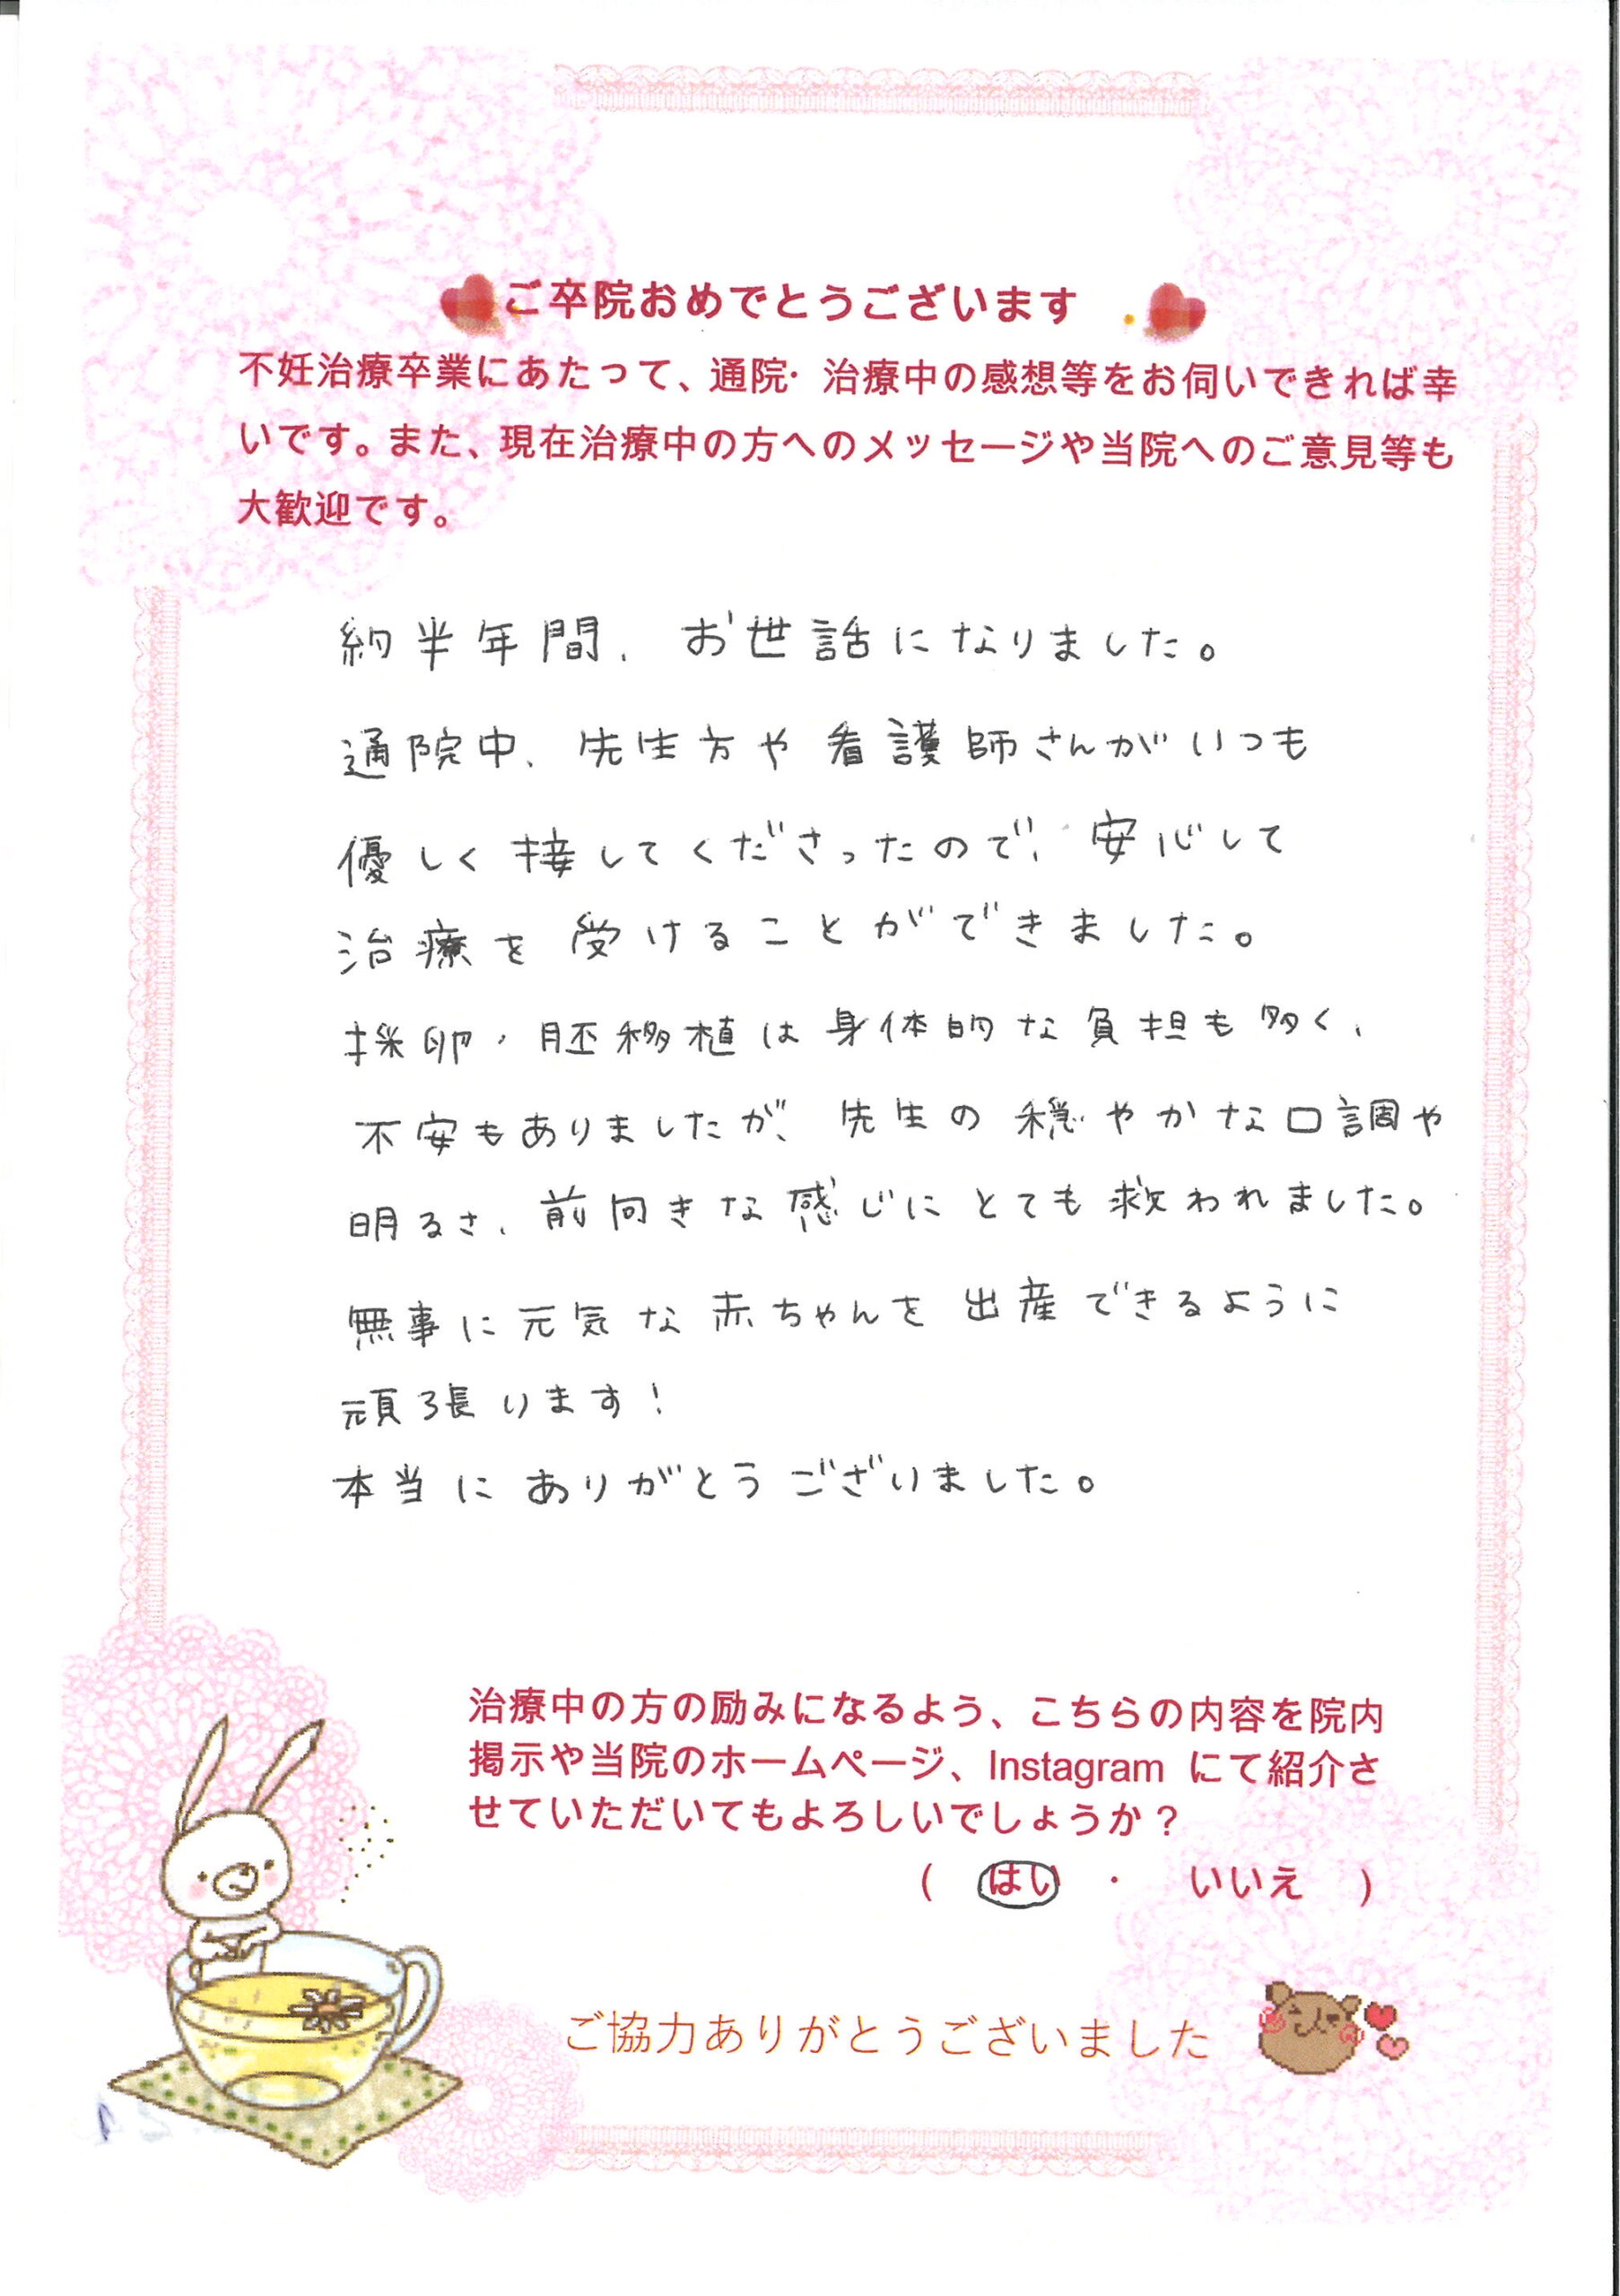 ご卒院おめでとうございます
不妊治療卒業にあたって、通院・治療中の感想等をお伺いできれば幸
いです。また、現在治療中の方へのメッセージや当院へのご意見等も
大歓迎です。
約半年間、お世話になりました。
通院中、先生方や看護師さんがいつも
優しく接してくださったので、安心して
治療を受けることができました。
採卵・胚移植は身体的な負担も多く、
不安もありましたが、先生の穏やかな口調や
明るさ、前向きな感じにとても救われました。
無事に元気な赤ちゃんを出産できるように
頑張ります！
本当にありがとうございました。
治療中の方の励みになるよう、こちらの内容を院内
掲示や当院のホームページ、Instagram にて紹介さ
せていただいてもよろしいでしょうか？
（ はい ・ いいえ ）
ご協力ありがとうございました